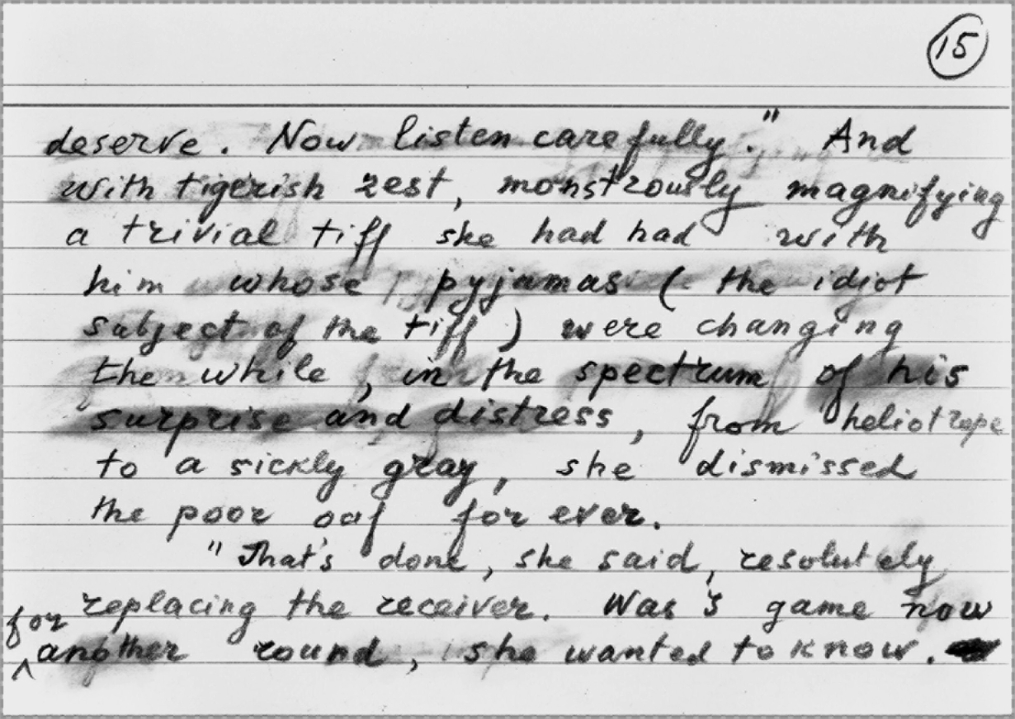 15
deserve. Now listen carefully." And
with tigerish zest, monstrously magnifying
a trivial tiff she had had with
him whose pyjamas (the idiot
subject of the tiff) were changing
the while, in the spectrum of his
surprise and distress, from heliotrope
to a sickly gray, she dismissed
the poor oaf for ever.
"That's done, she said, resolutely
replacing the receiver. Was I game now
for another round, she wanted to know.